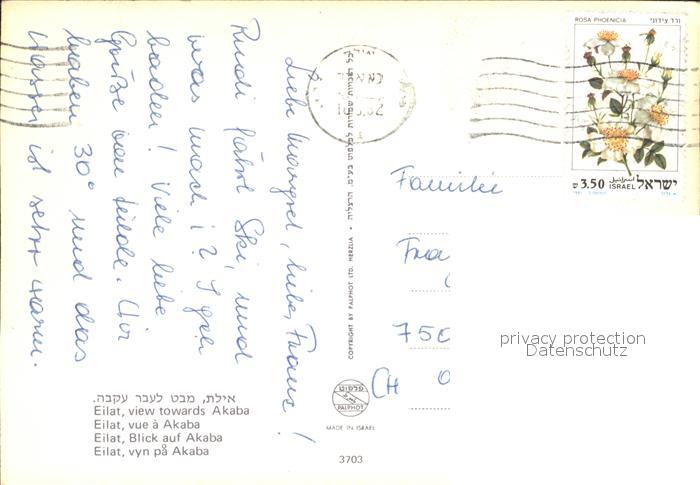 Liebe Margret, lieber Franz!
Rudi fährt Ski, und
was mach i? I geh
baden! Viele liebe
Grüße von Linde. Wir
haben 30° und das
Wasser ist sehr warm.
אילת, מבט לעבר עקבה.
Eilat, view towards Akaba
Eilat, vue à Akaba
Eilat, Blick auf Akaba
Eilat, vyn på Akaba
COPYRIGHT BY PALPHOT LTD. HERZLIA
פלפוט
PALPHOT
MADE IN ISRAEL
3703
ROSA PHOENICIA
ורד צידוני
₪ 3.50
اسرائيل
ISRAEL
ישראל
Familie
Fra
750
CH
privacy protection
Datenschutz